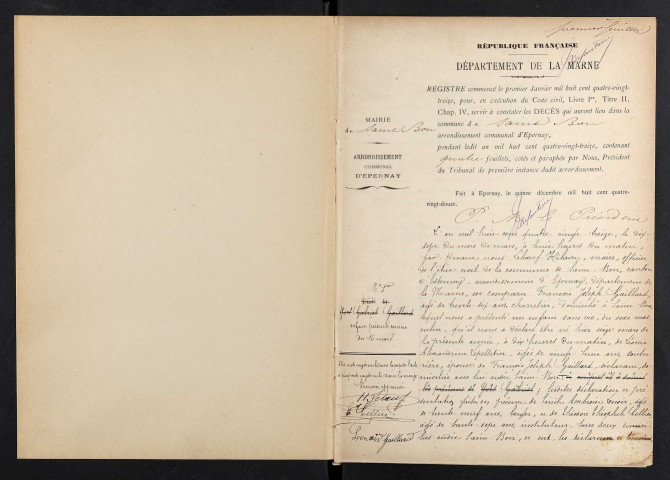 premier feuillet
RÉPUBLIQUE FRANÇAISE
DÉPARTEMENT DE LA MARNE
REGISTRE commencé le premier Janvier mil huit cent quatre-vingt-
treize, pour, en exécution du Code civil, Livre Ier, Titre II,
Chap. IV, servir à constater les DÉCÈS qui auront lieu dans la
commune de Saint Bon
arrondissement communal d'Epernay,
pendant ledit an mil huit cent quatre-vingt-treize, contenant
quatre feuillets, cotés et paraphés par Nous, Président
du Tribunal de première instance dudit arrondissement.
Fait à Epernay, le quinze décembre mil huit cent quatre-
vingt-douze.
MAIRIE
de Saint Bon
ARRONDISSEMENT
COMMUNAL
D'ÉPERNAY
P. Le Président
L'an mil huit cent quatre vingt treize, le dix
sept du mois de mars, à huit heures du matin,
par devant nous Hilaire, maire, officier
de l'état civil de la commune de Saint-Bon, canton
d'Esternay, arrondissement d'Epernay, département de
la Marne, est comparu François Joseph Gaillard,
âgé de trente six ans, charretier, domicilié à Saint Bon,
lequel nous a présenté un enfant sans vie, du sexe mas
culin, qu'il nous a déclaré être né hier seize mars de
la présente année, à dix heures du matin, de Léonie
Alexandrine Lepelletier, âgée de vingt huit ans, coutu
rière, épouse de François Joseph Gaillard, déclarant, do
miciliée avec lui audit Saint Bon
lesdites déclaration et pré
sentation faites en présence de Ambroise
de trente neuf ans, berger, et de Théophile Cellier
âgé de trente sept ans, instituteur, tous deux domici
liés audit Saint-Bon, et ont les déclarant et témoins
Gaillard
enfant présenté sans vie
du 16 mars
Cellier
Gaillard